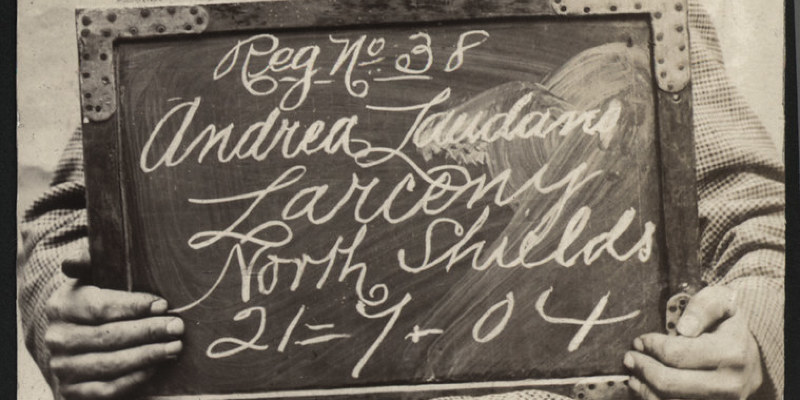 Reg Nº 38
Andrea Laudans
Larceny
North Shields
21=7-04